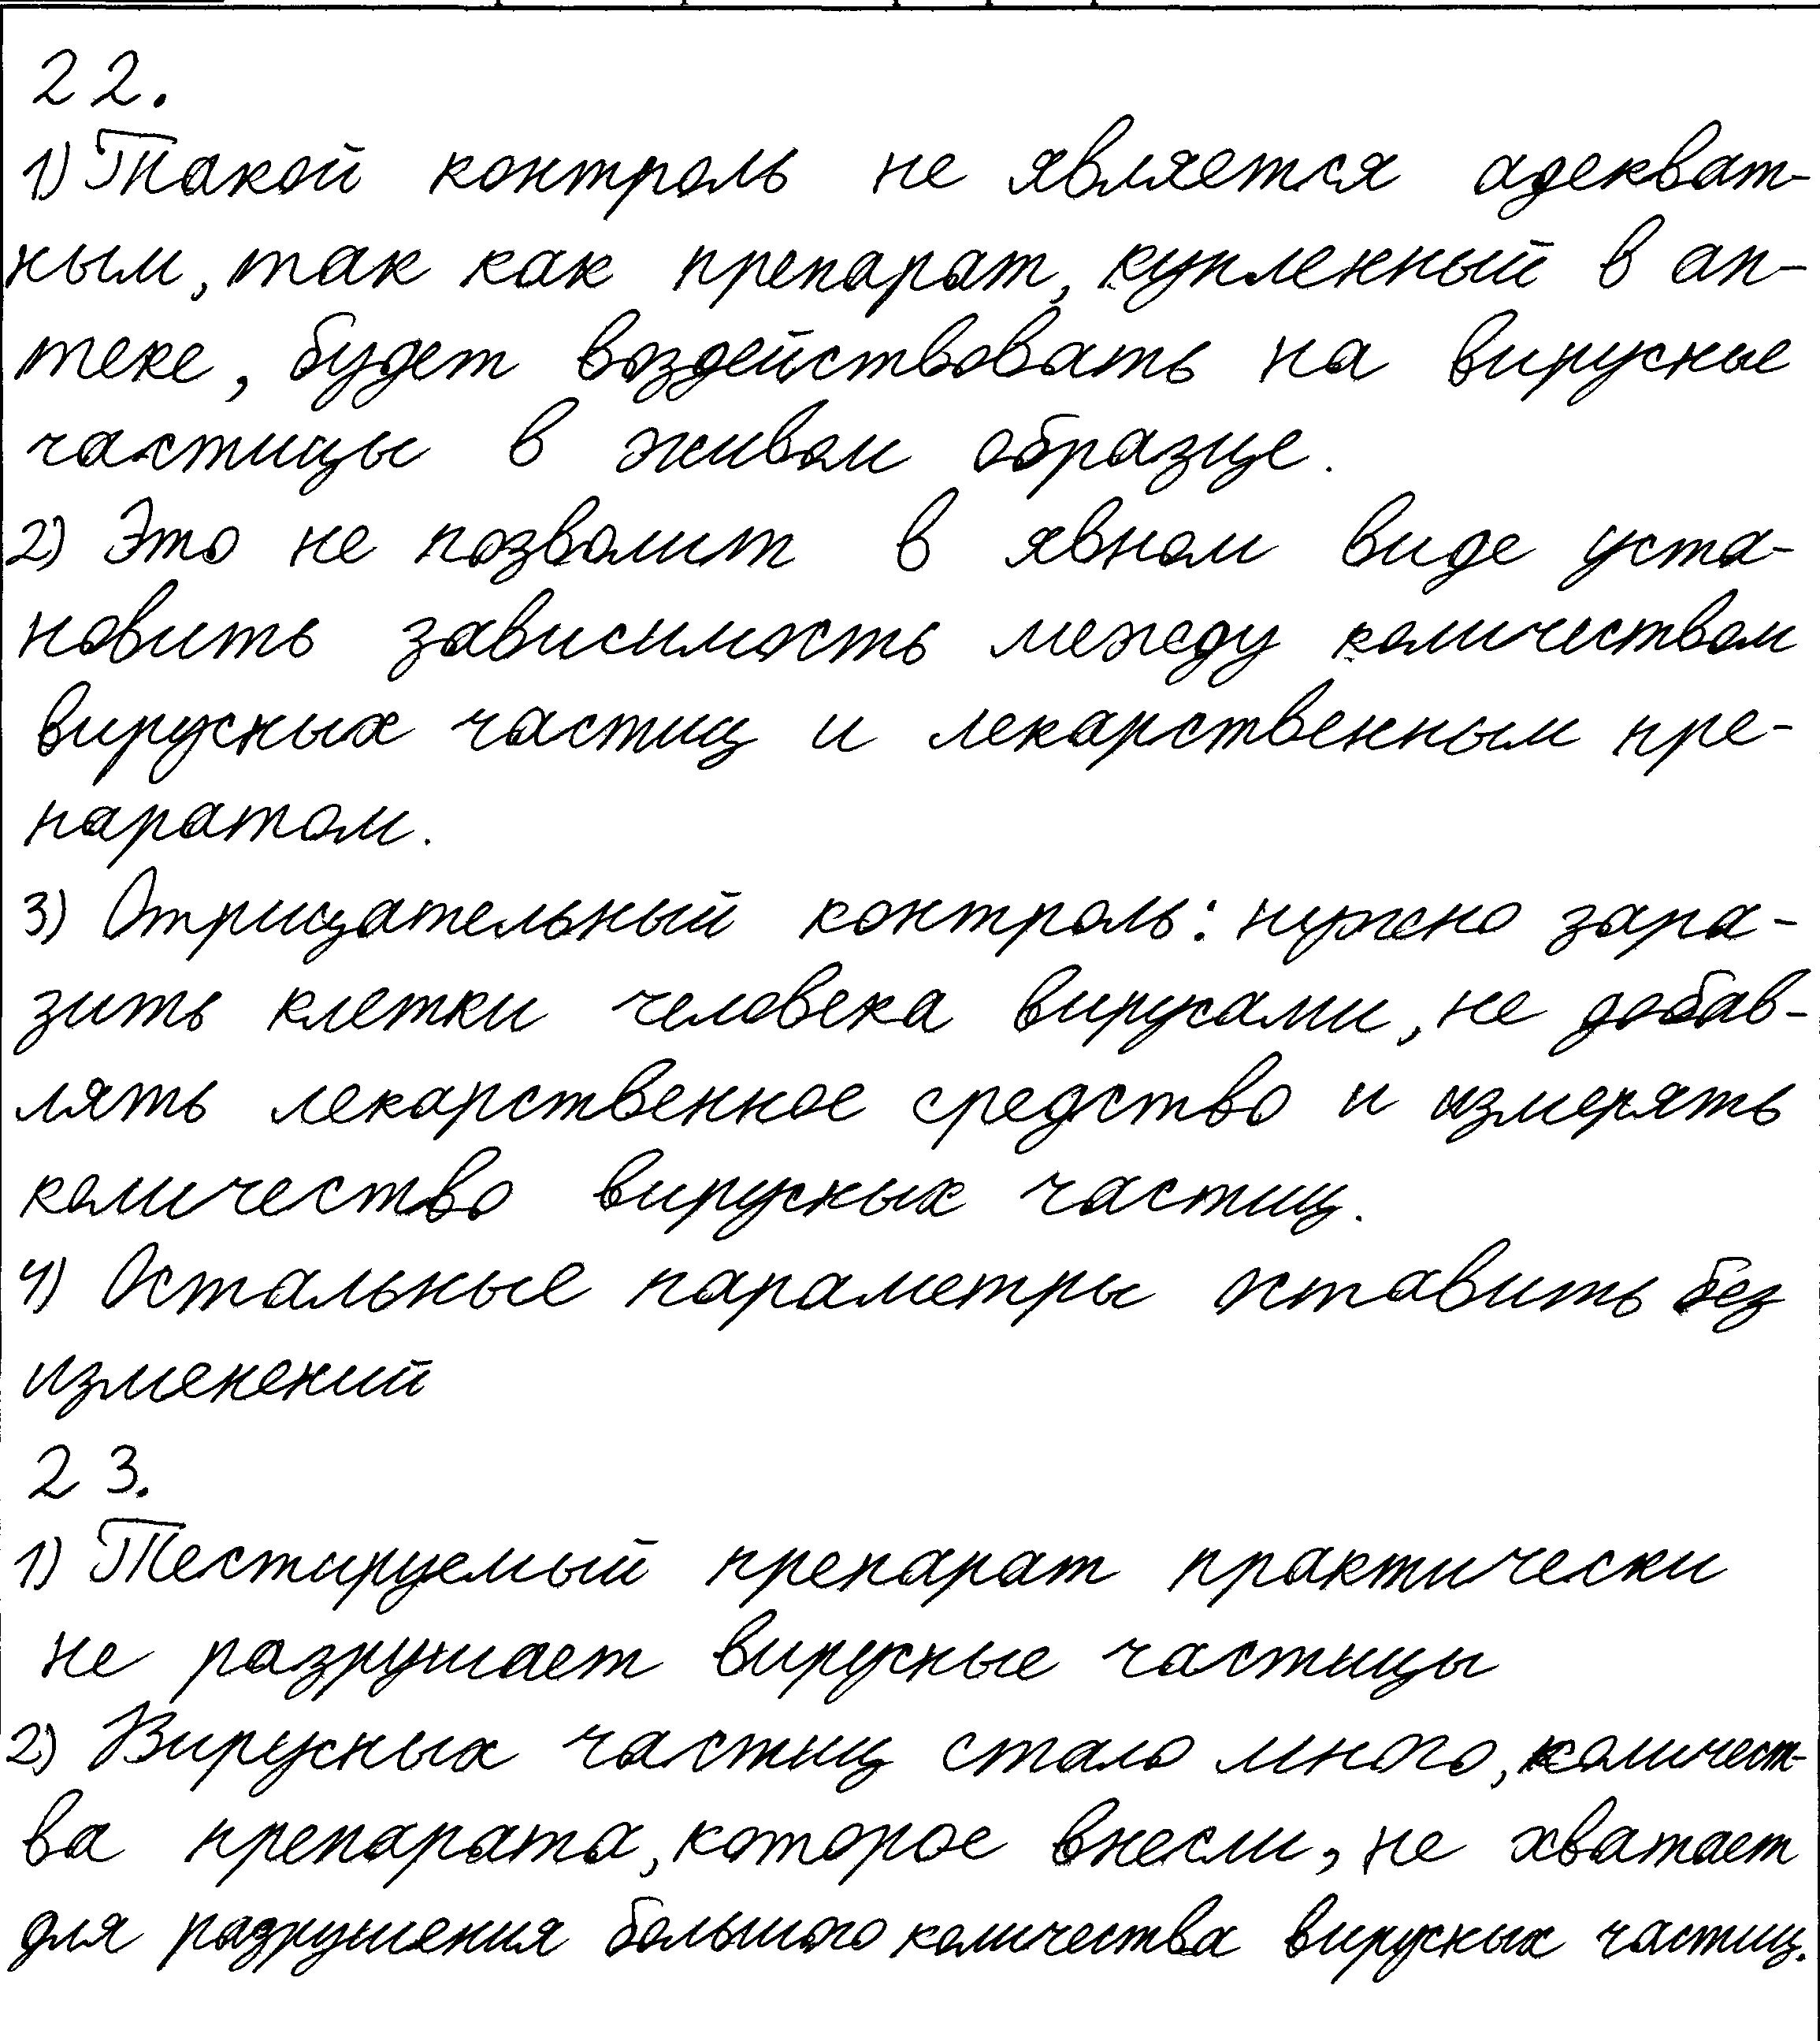 22.
1) Такой контроль не является адекват-
ным, так как препарат, купленный в ап-
теке, будет воздействовать на вирусные
частицы в живом образце.
2) Это не позволит в явном виде уста-
новить зависимость между количеством
вирусных частиц и лекарственным пре-
паратом.
3) Отрицательный контроль: нужно зара-
зить клетки человека вирусами, не добав-
лять лекарственное средство и измерять
количество вирусных частиц.
4) Остальные параметры оставить без
изменений
23.
1) Тестируемый препарат практически
не разрушает вирусные частицы
2) Вирусных частиц стало много, количест-
ва препарата, которое внесли, не хватает
для разрушения большого количества вирусных частиц.